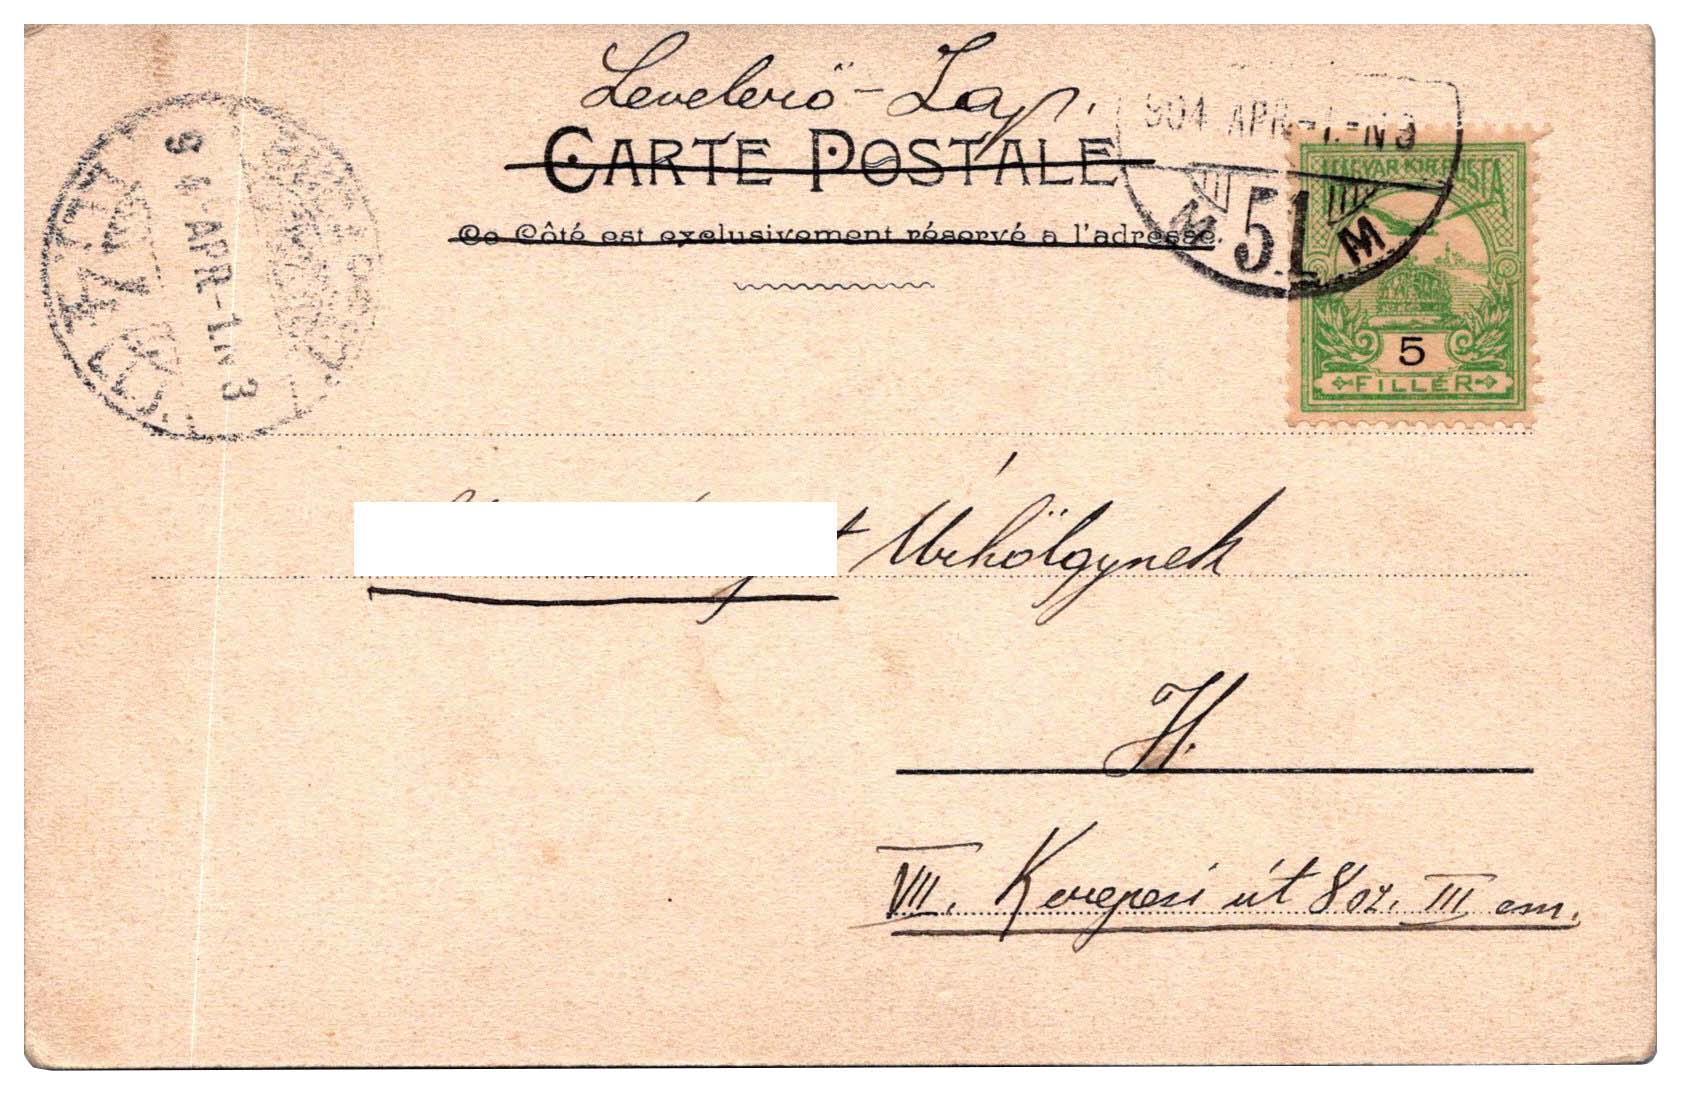 Levelező-Lap.
CARTE POSTALE
Ce Côté est exclusivement réservé a l'adresse.
904 APR-1.-N3
M 51 M
MAGYAR KIR. POSTA
5
FILLÉR
904 APR-1.N3
Úrhölgynek
H.
VII. Kerepesi út 8 sz. III em.